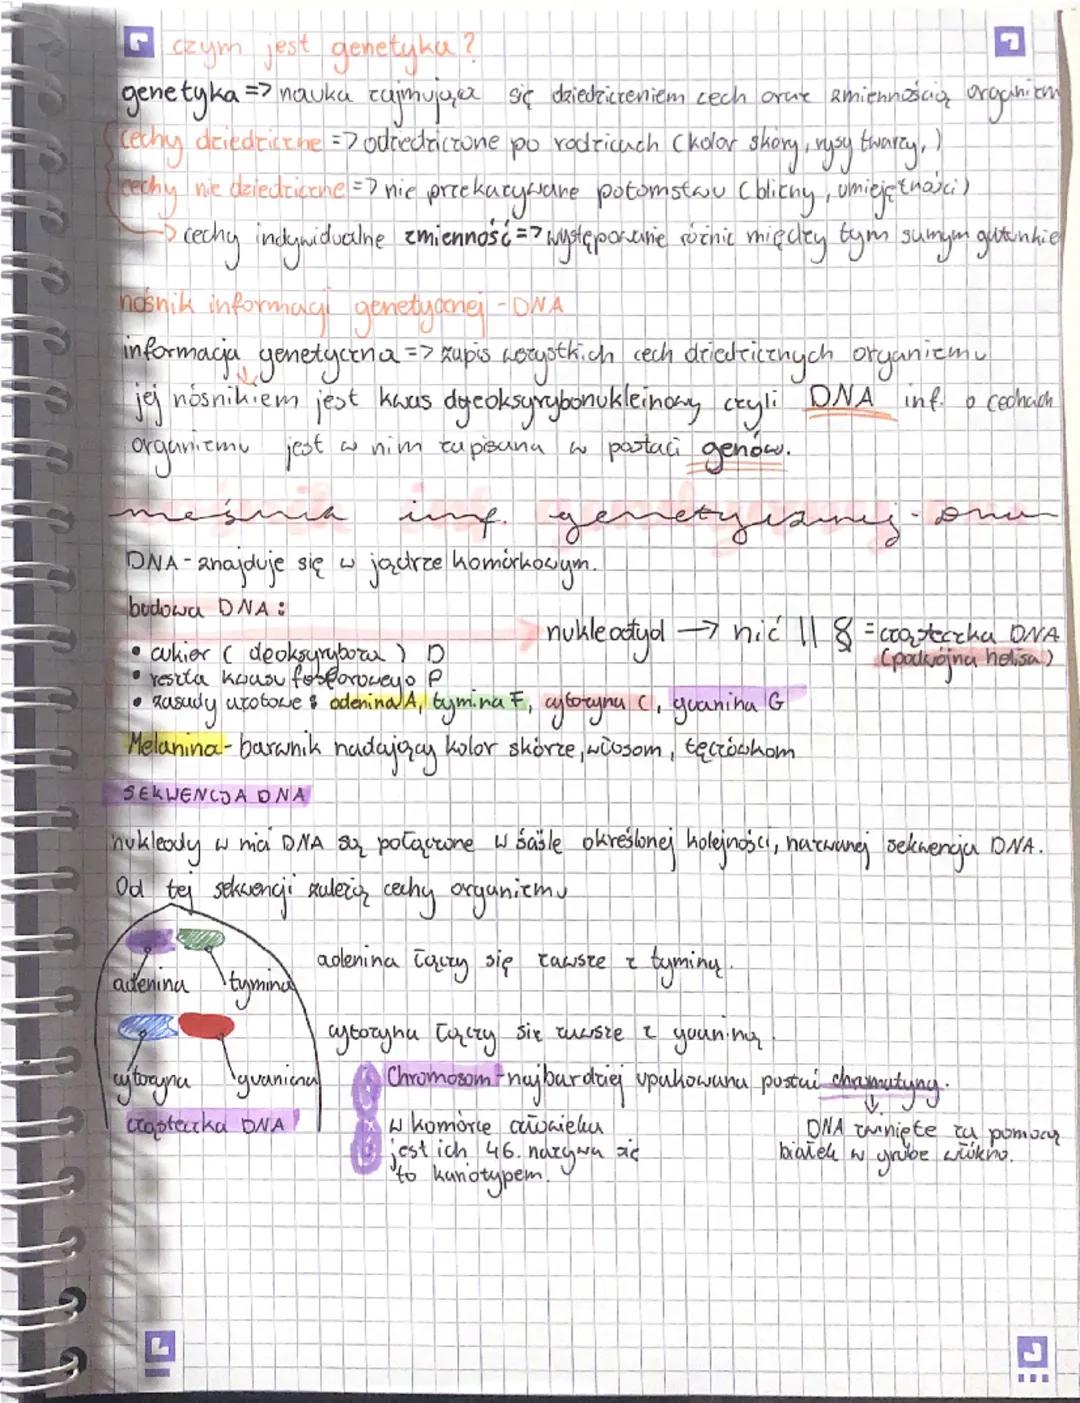 czym jest genetyka?
genetyka => nauka zajmująca się dziedziczeniem cech oraz zmiennością organizm
cechy dziedziczne => odziedziczone po rodzicach (kolor skóry, rysy twarzy,)
cechy nie dziedziczne => nie przekazywane potomstwu (blizny, umiejętności)
cechy indywidualne zmienność => występowanie różnic między tym samym gatunkie
nośnik informacji genetycznej - DNA
informacja genetyczna => zapis wszystkich cech dziedzicznych organizmu
jej nośnikiem jest kwas dyeoksyrybonukleinowy czyli DNA inf. o cechach
organizmu jest w nim zapisana w postaci genów.
inf. genetycznej - DNA
DNA - znajduje się w jądrze komórkowym.
budowa DNA:
nukleotyd → nić || = cząsteczka DNA
(podwójna helisa)
• cukier (deoksyryboza) D
• reszta kwasu fosforowego P
• zasady azotowe: adenina A, tymina T, cytozyna C, guanina G
Melanina - barwnik nadający kolor skórze, włosom, tęczówkom
SEKWENCJA DNA
nukleody w nici DNA są połączone w śaśle określonej kolejności, nazwanej sekwencją DNA.
Od tej sekwencji zależą cechy organizmu
adenina tymina
adenina łączy się zawsze z tyminą.
cytozyna guanina
cytozyna łączy się zawsze z guaniną.
cząsteczka DNA
Chromosom - najbardziej upakowana postać chromatyny.
w komórce człowieka
jest ich 46. nazywa się
to kariotypem.
DNA zwinięte za pomocą
białek w grube włókno.